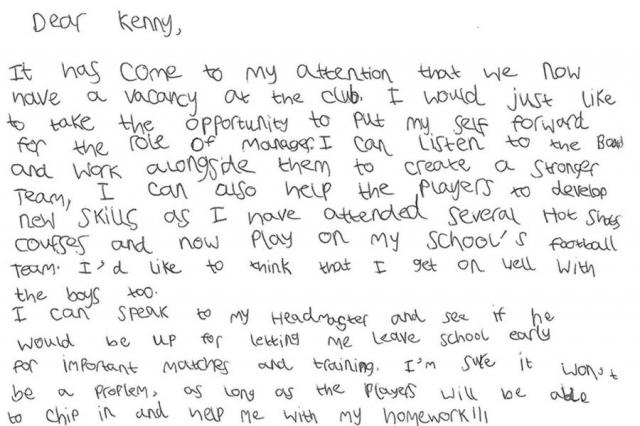 Dear Kenny,
It has come to my attention that we now
have a vacancy at the club. I would just like
to take the opportunity to put my self forward
for the role of manager. I can listen to the Board
and work alongside them to create a stronger
Team, I can also help the players to develop
new skills as I have attended several Hot Shots
courses and now play on my school's football
Team. I'd like to think that I get on well with
the boys too.
I can speak to my Headmaster and see if he
would be up for letting me leave school early
for important matches and training. I'm sure it won't
be a problem, as long as the players will be able
to chip in and help me with my homework!!!